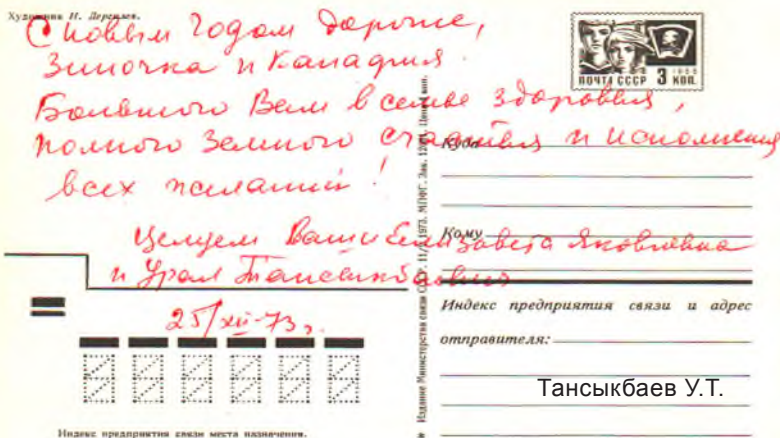 Художник И. Дергилев.
С новым годом дорогие,
Зиночка и Канадрия
Большого Вам в семье здоровья,
полного земного счастья и исполнения
всех желаний!
Целуем Ваши Елизавета Яковлевна
и Урал Тансыкбаевич
25/XII-73г.
ПОЧТА СССР 3 КОП.
Куда
Кому
Индекс предприятия связи и адрес
отправителя:
Тансыкбаев У.Т.
Индекс предприятия связи места назначения.
Издание Министерства связи СССР. 1973. МПФГ. Зак.